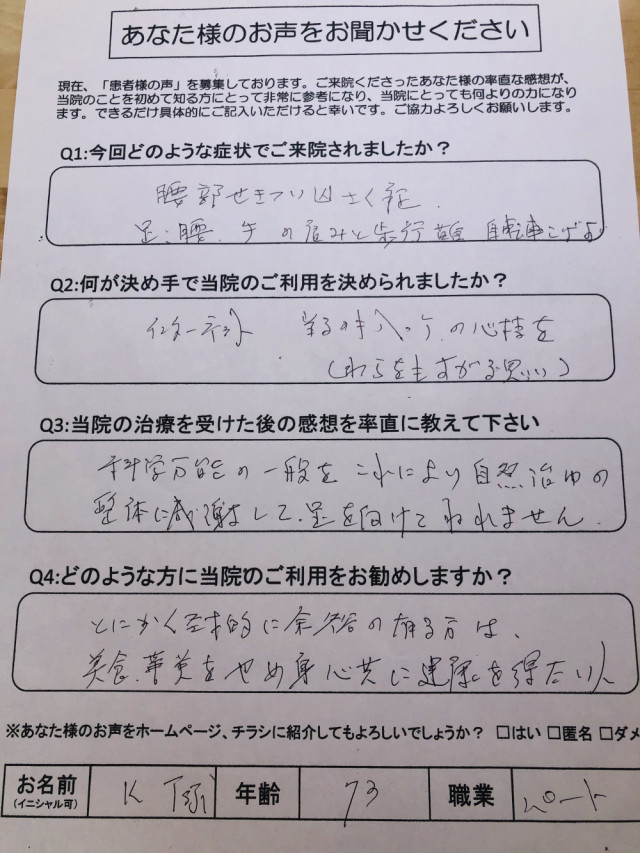 あなた様のお声をお聞かせください
現在、「患者様の声」を募集しております。ご来院くださったあなた様の率直な感想が、
当院のことを初めて知る方にとって非常に参考になり、当院にとっても何よりの力になり
ます。できるだけ具体的にご記入いただけると幸いです。ご協力よろしくお願いします。
Q1:今回どのような症状でご来院されましたか？
腰部せきつい囚さく症
足、腰、手の痛みと歩行 自転車こげ
Q2:何が決め手で当院のご利用を決められましたか？
インターネット の心持を
(わらをもすがる思い)
Q3:当院の治療を受けた後の感想を率直に教えて下さい
科学万能の一般を これにより自然治ゆの
整体に感謝まして、足を向けてねれません。
Q4:どのような方に当院のご利用をお勧めしますか？
とにかく 的に余裕の有る方は、
美食、 をやめ身心共に健康を得たい人
※あなた様のお声をホームページ、チラシに紹介してもよろしいでしょうか？ □はい □匿名 □ダメ
お名前 K 年齢 73 職業 パート
(イニシャル可)